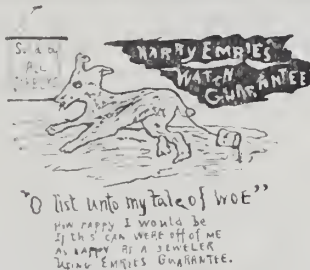 Sold by
ALL
HARRY EMRIE'S
WATCH
GUARANTEE
"O list unto my tale of WOE"
HOW HAPPY I WOULD BE
If this CAN WERE off of ME
As HAPPY AS A JEWELER
USING EMRIES GUARANTEE.